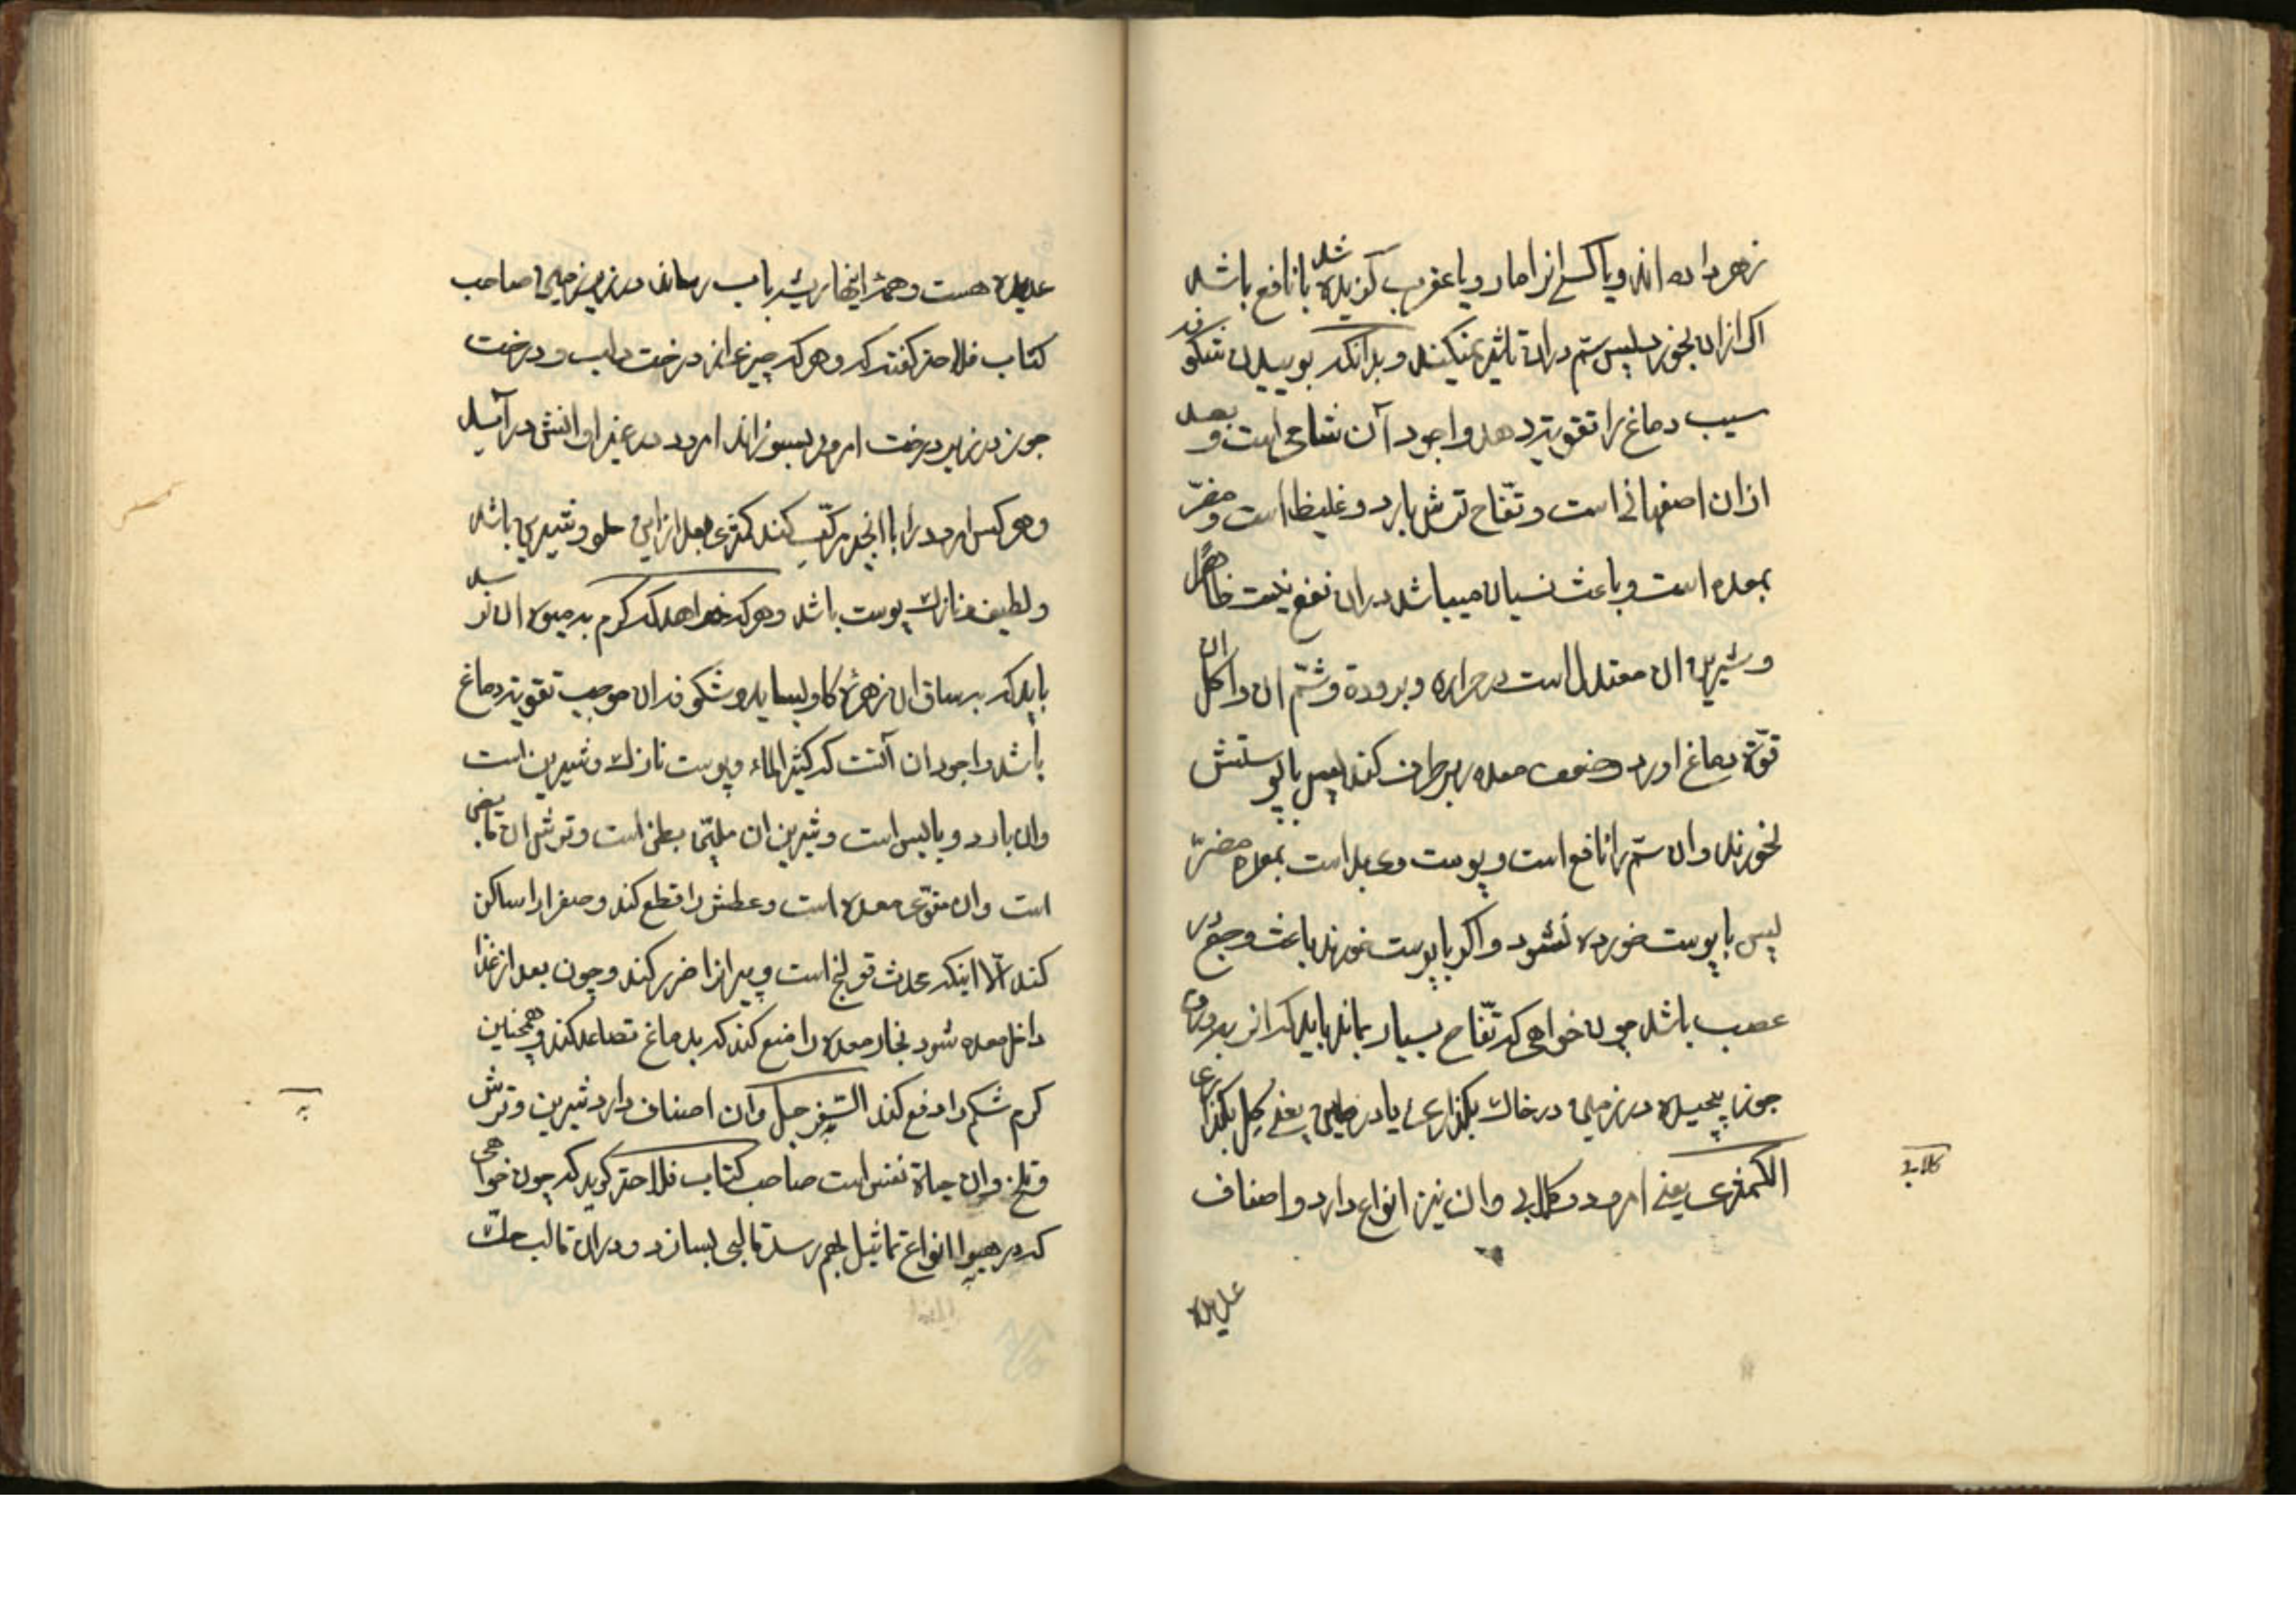 زهر داده اند ویا کسی انرا مار ویا عقرب کزیده شده بانافع باشد
اکر ازان بخورد پس سم دران تاثیر نمیکند و بدانکه بوییدن شکوفه
سیب دماغ را تقویة دهد واجود آن شامی است و بعد
ازان اصفهانی است و تفّاح ترش بارد و غلیظ است و مضرّ
بمعده است و باعث نسیان میباشد دران نفع نیست ظاهرًا
و شیرین ان معتدل است در حراره و برودة و شمّ ان و اکل ان
قوّة دماغ اورد و ضعف معده را برطرف کند پس باپوستش
بخورند وان سمّ را نافع است و پوست وی بد است بمعده مضرّ
پس با پوست خورده نشود و اکر با پوست خورند باعث وجع در
عصب باشد چون خواهی که تفّاح بسیار بماند باید که انرا بورق
جوز پیچیده در زمین در خاک بکذاری یا در طین یعنی کِل بکذاری
الکمثری یعنی امرود و کلابی وان نیز انواع دارد و اصناف
کلابی
عدیده
عدیده هست و همه اینها ریشه بآب رساند در زیر زمین صاحب
کتاب فلاحة کفته که و هرکه چیزی از درخت دلب و درخت
جوز در زیر درخت امرود بسوزاند امرود در غیر اوانش درآید
و هرکس امرود را با انجیر مرکّب کند کمثری بعد ازاین حلو و شیرین باشد
و لطیف و نازک پوست باشد و هرکه خواهد که کرم به میوه ان نرسد
باید که بر ساق ان زهرهٔ کاو بساید و شکوفه ان موجب تقویة دماغ
باشد و اجود ان آنست که کثیر الماء و پوست نازک و شیرین است
وان بارد و یابس است و شیرین ان ملیّن بطن است و ترش ان قابض
است وان مقوّی معده است و عطش را قطع کند و صفرا را ساکن
کند الّا اینکه محدث قولنج است و پیرانرا ضرر کند و چون بعد از غذا
داخل معده شود بخار معده را منع کند که بدماغ تصاعد کند و همچنین
کرم شکم را دفع کند السّفرجل وان اصناف دارد شیرین و ترش
و تلخ وان حیاة نفس است صاحب کتاب فلاحة کوید که چون خواهی
که در هیوا انواع تماثیل بهم رسد قالبی بسازد و دران قالب حکّ
به